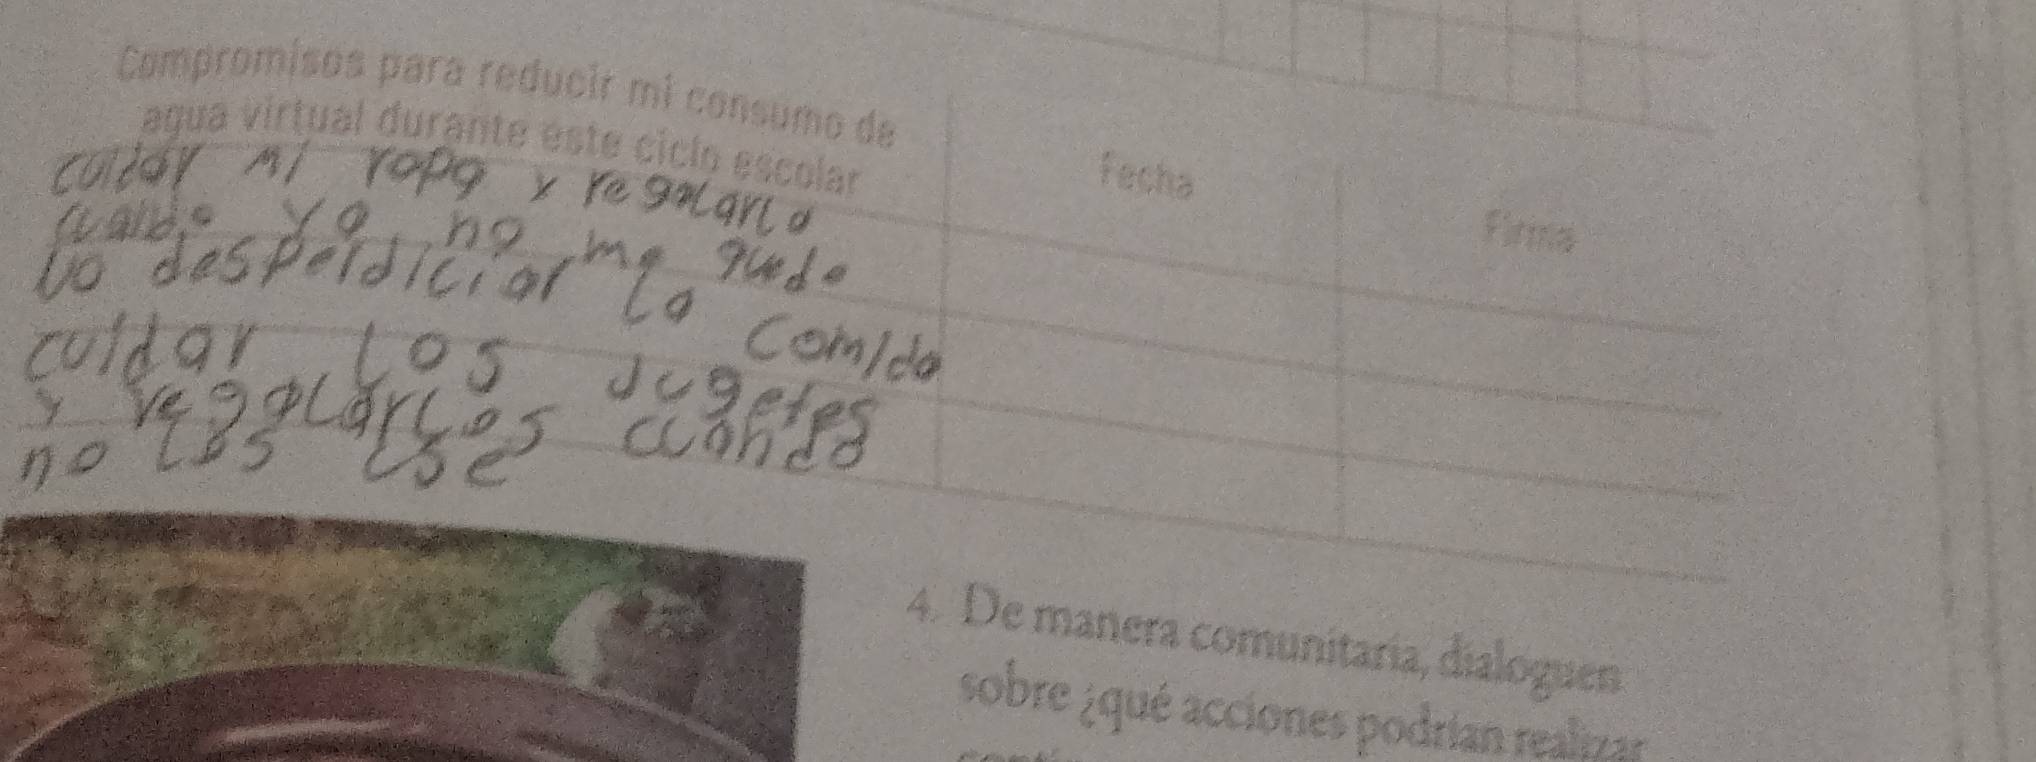 Compromisos para reducir mi consumo de
agua virtual durante este ciclo escolar
Fecha
Firma
cuidar mi ropa y regalarla
cuando ya no me quede
no desperdiciar la comida
cuidar los jugetes
y regalarlos cuando
no los use
4. De manera comunitaria, dialoguen
sobre ¿qué acciones podrían realizar